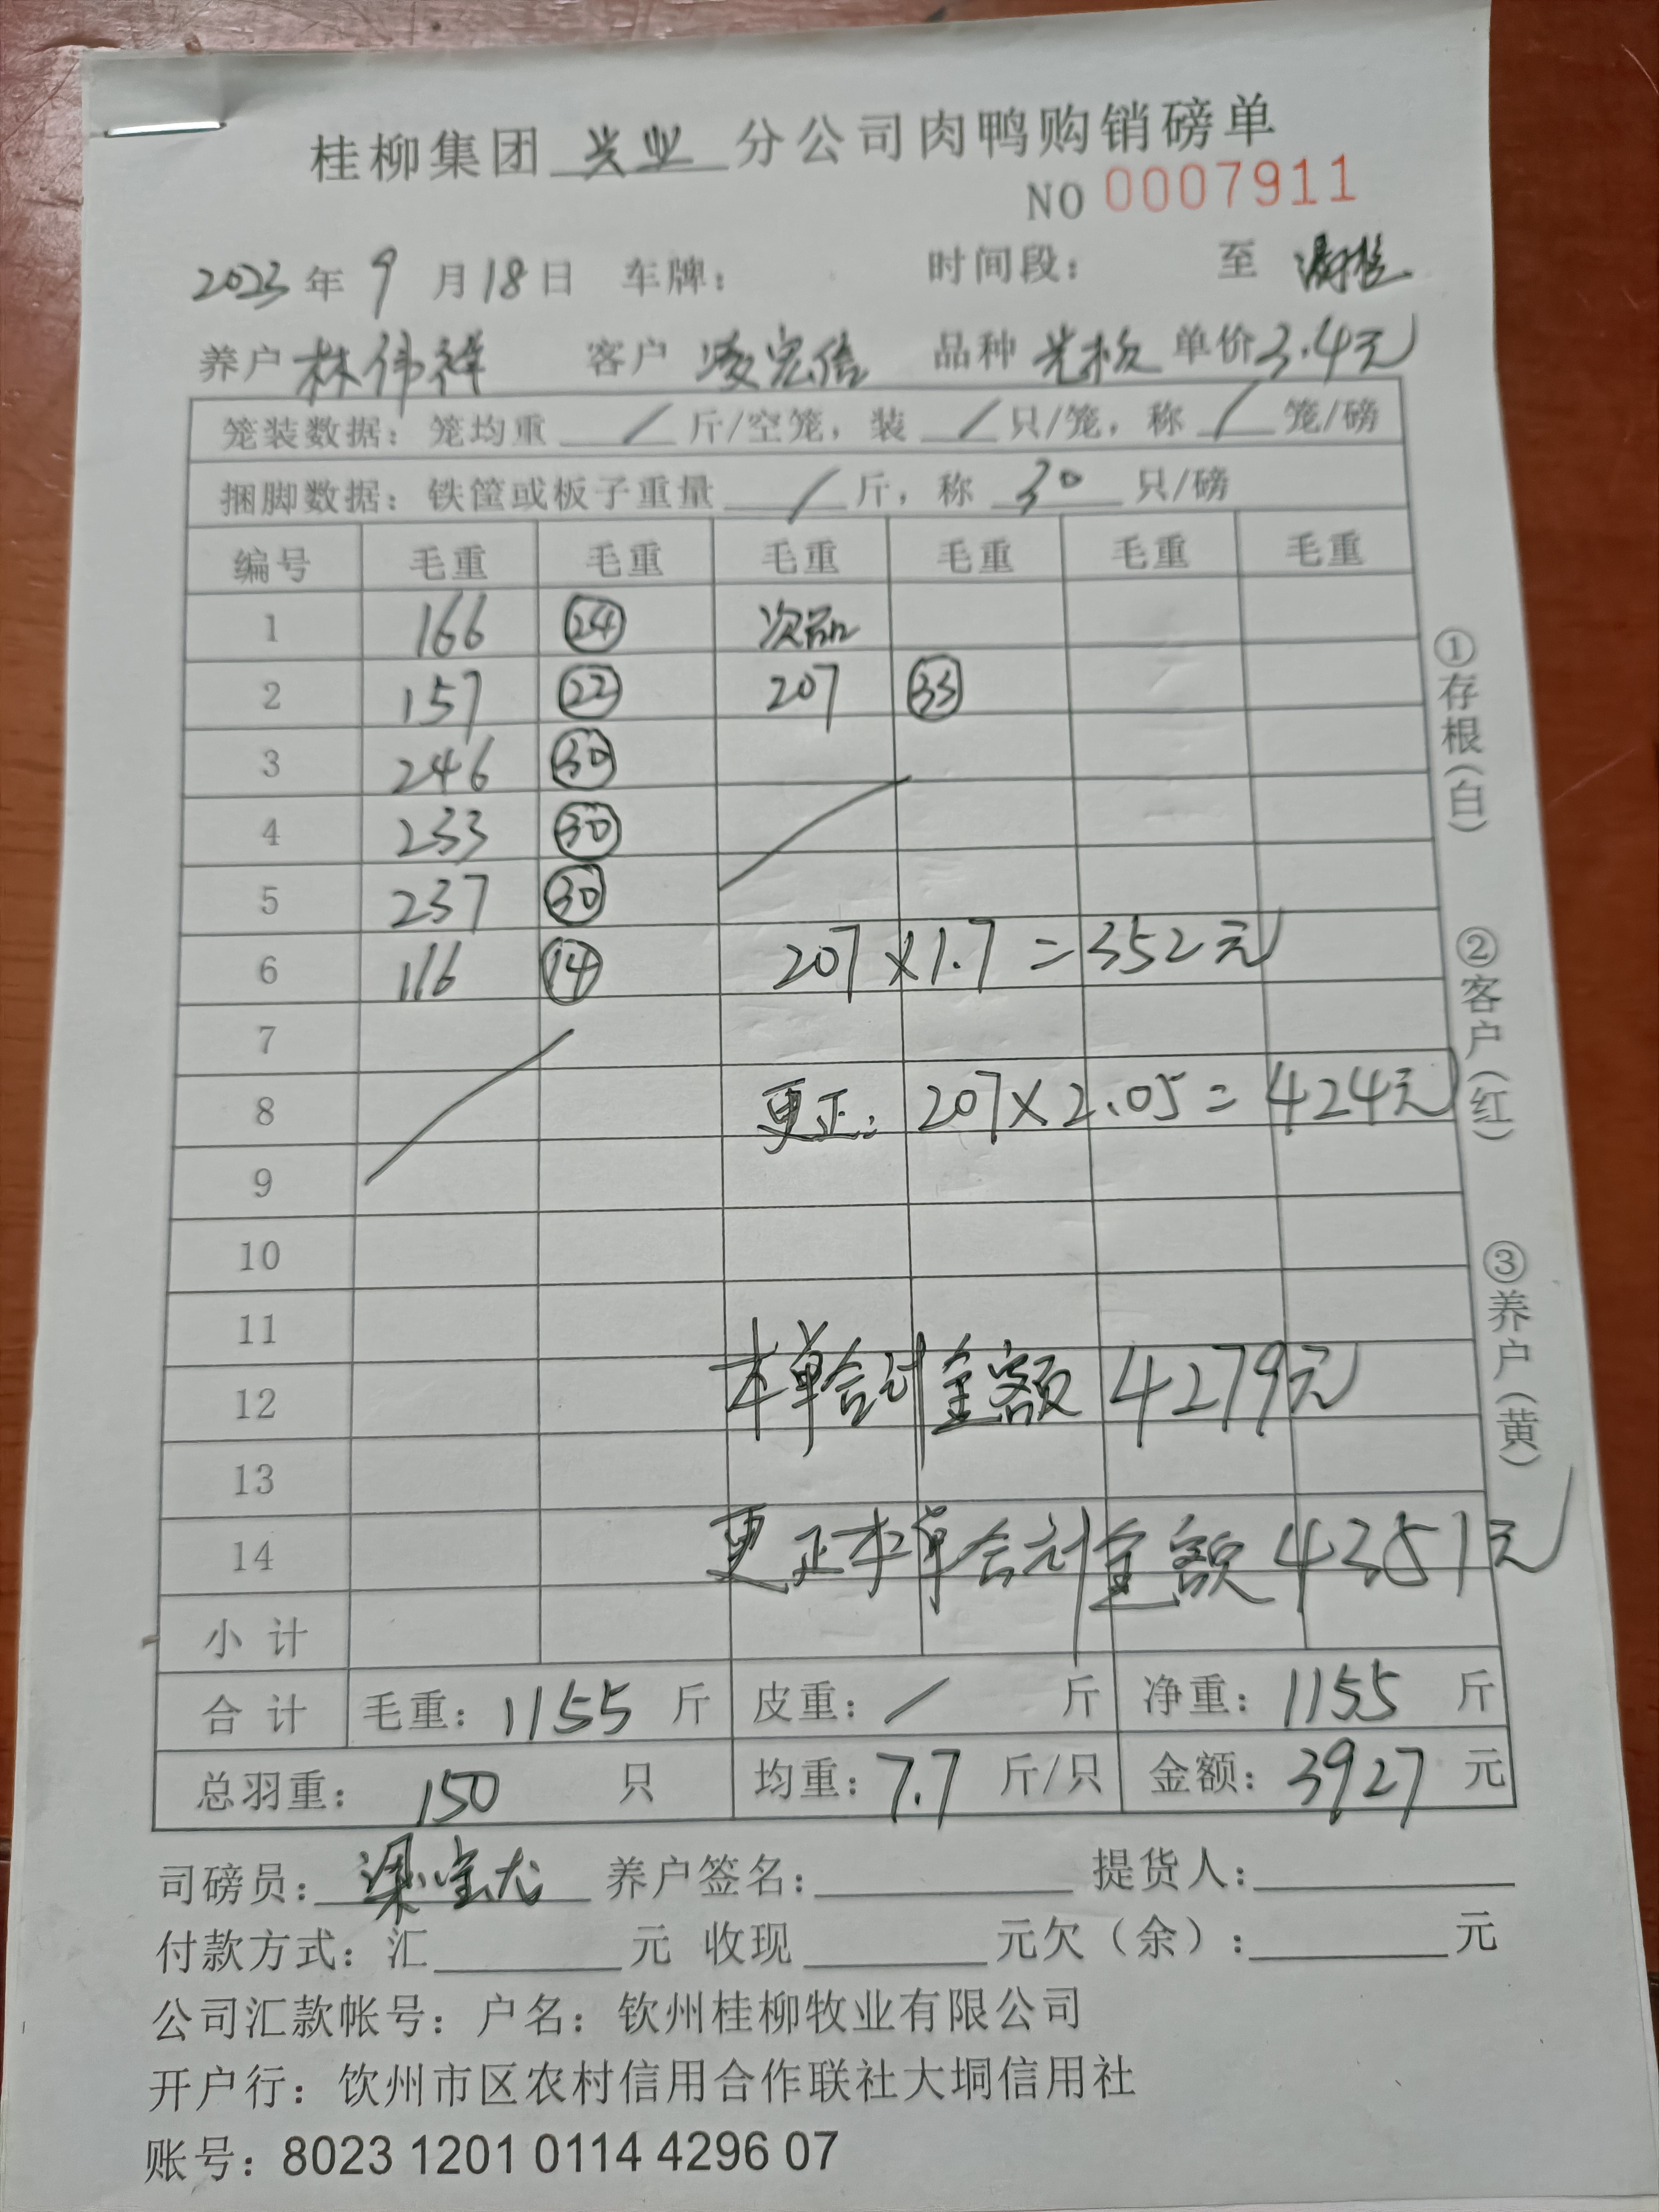 桂柳集团 兴业 分公司肉鸭购销磅单
NO 0007911
2023 年 9 月 18 日 车牌： 时间段： 至
养户 林伟祥 客户 凌宏信 品种 单价 3.4元
笼装数据：笼均重 / 斤/空笼，装 / 只/笼，称 / 笼/磅
捆脚数据：铁筐或板子重量 / 斤，称 30 只/磅
编号 毛重 毛重 毛重 毛重 毛重 毛重
1 166 24 次品
2 157 22 207 33
3 246 30
4 233 30
5 237 30
6 116 14 207×1.7=352元
7
8 更正：207×2.05=424元
9
10
11
12 本单合计金额 4279元
13
14 更正本单合计金额 4351元
小 计
合 计 毛重：1155 斤 皮重：/ 斤 净重：1155 斤
总羽重：150 只 均重：7.7 斤/只 金额：3927 元
司磅员： 养户签名： 提货人：
付款方式：汇 元 收现 元欠（余）： 元
公司汇款帐号：户名：钦州桂柳牧业有限公司
开户行：饮州市区农村信用合作联社大垌信用社
账号：8023 1201 0114 4296 07
①存根（白）
②客户（红）
③养户（黄）